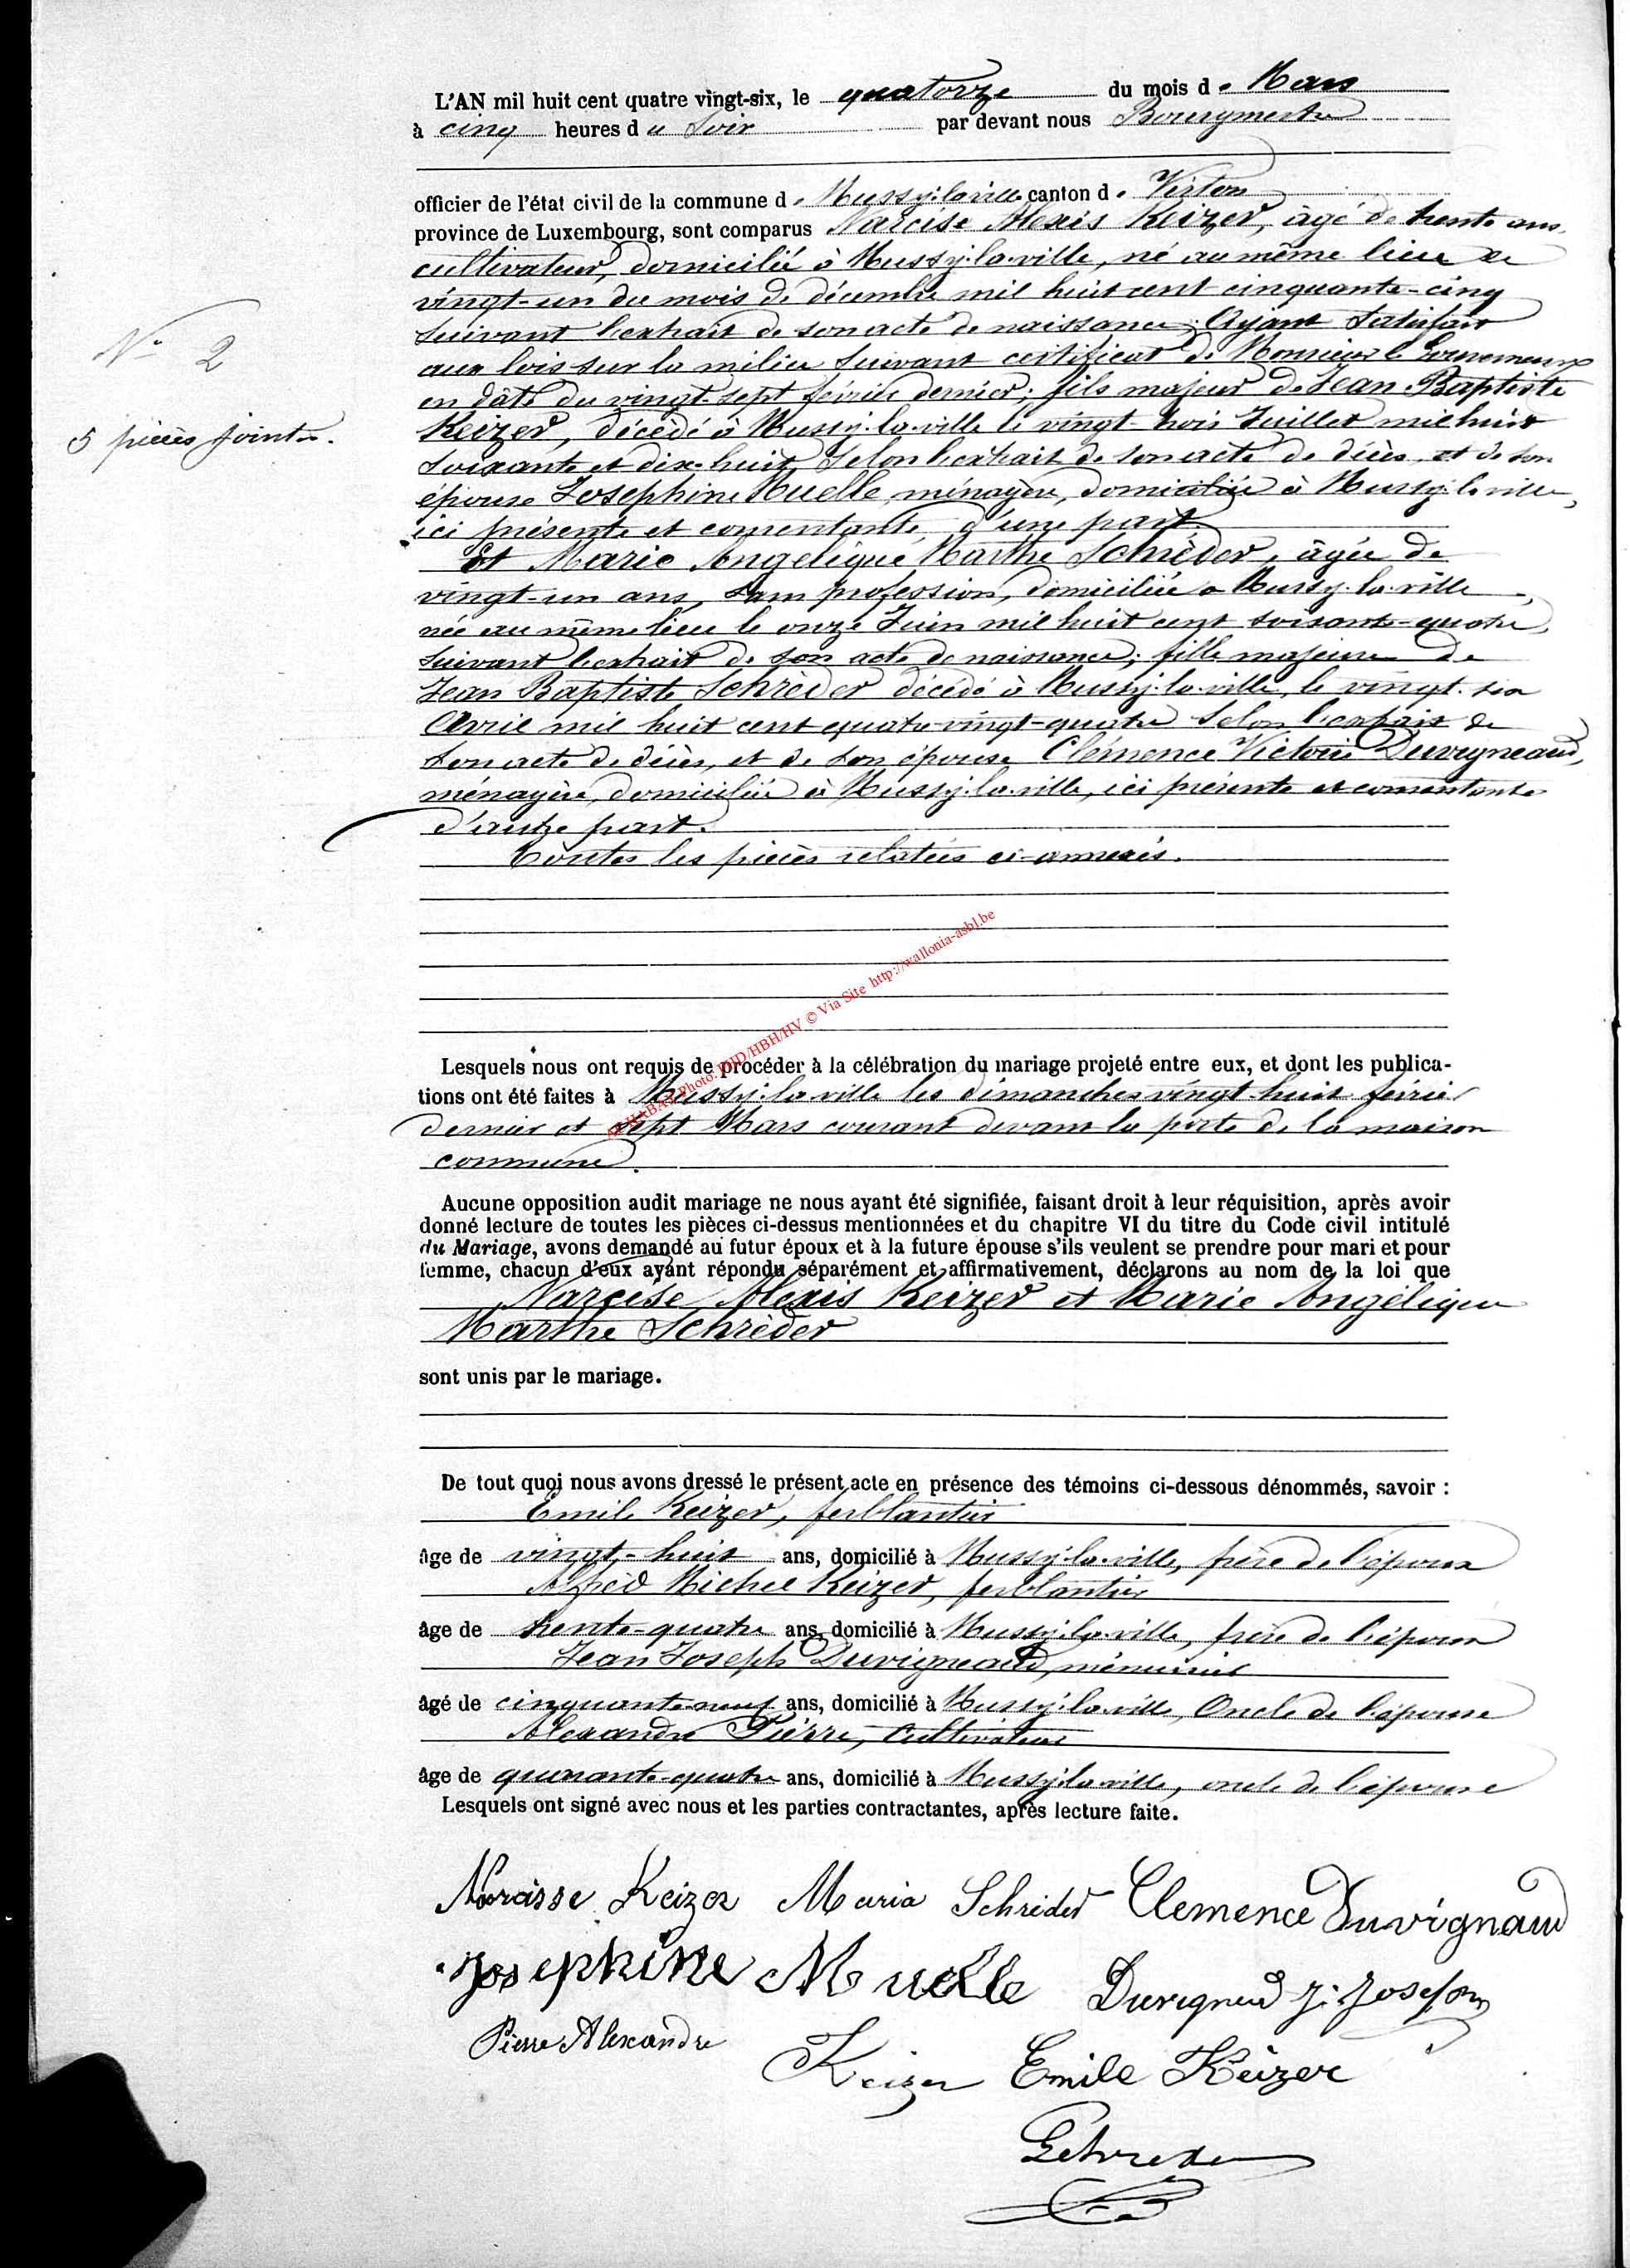 L'AN mil huit cent quatre vingt-six, le quatorze du mois de Mars
à cinq heures du Soir par devant nous Bourgmestre
officier de l'état civil de la commune de Mussy-la-ville canton de Virton
province de Luxembourg, sont comparus Narcise Alexis Keizer, âgé de trente ans,
cultivateur, domicilié à Mussy-la-ville, né au même lieu le
vingt-un du mois de décembre mil huit cent cinquante-cinq
suivant l'extrait de son acte de naissance; Ayant Satisfait
aux lois sur la milice suivant certificat de Monsieur le Gouverneur
en dâte du vingt-sept février dernier; fils majeur de Jean-Baptiste
Keizer, décédé à Mussy-la-ville le vingt-trois Juillet mil huit
soixante et dix-huit, Selon l'extrait de son acte de décès, et de son
épouse Josephine Muelle, ménagère, domiciliée à Mussy-la-ville,
ici présente et consentante, d'une part
Et Marie Angelique Marthe Schrèder, âgée de
vingt-un ans, sans profession, domiciliée à Mussy-la-ville,
née au même lieu le onze Juin mil huit cent soixante-quatre,
suivant l'extrait de son acte de naissance; fille majeure de
Jean Baptiste Schrèder décédé à Mussy-la-ville, le vingt-six
Avril mil huit cent quatre-vingt-quatre Selon l'extrait de
son acte de décès, et de son épouse Clémence Victoire Duvigneaud,
ménagère, domiciliée à Mussy-la-ville, ici présente et consentante
d'autre part.
Toutes les pièces relatées ci-annexés.
N° 2
5 pièces jointes.
AC HABAY Photo. PHD/HBH/HV © Via Site http://wallonia-asbl.be
Lesquels nous ont requis de procéder à la célébration du mariage projeté entre eux, et dont les publica-
tions ont été faites à Mussy-la-ville les dimanches vingt-huit février
dernier et sept Mars courant devant la porte de la maison
commune.
Aucune opposition audit mariage ne nous ayant été signifiée, faisant droit à leur réquisition, après avoir
donné lecture de toutes les pièces ci-dessus mentionnées et du chapitre VI du titre du Code civil intitulé
du Mariage, avons demandé au futur époux et à la future épouse s'ils veulent se prendre pour mari et pour
femme, chacun d'eux ayant répondu séparément et affirmativement, déclarons au nom de la loi que
Narcise Alexis Keizer et Marie Angélique
Marthe Schrèder
sont unis par le mariage.
De tout quoi nous avons dressé le présent acte en présence des témoins ci-dessous dénommés, savoir :
Émile Keizer, ferblantier
âge de vingt-huit ans, domicilié à Mussy-la-ville, frère de l'époux
Alfréd Michel Keizer, ferblantier
âge de trente-quatre ans, domicilié à Mussy-la-ville, frère de l'époux
Jean Joseph Duvigneaud, ménuisier
âgé de cinquante-neuf ans, domicilié à Mussy-la-ville, Oncle de l'épouse
Alexandre Pierre, Cultivateur
âge de quarante-quatre ans, domicilié à Mussy-la-ville, oncle de l'épouse
Lesquels ont signé avec nous et les parties contractantes, après lecture faite.
Narcisse Keizer Maria Schreder Clemence Duvignaud
Josephine Muelle Duvigneud J. Joseph
Pierre Alexandre Keizer Emile Keizer